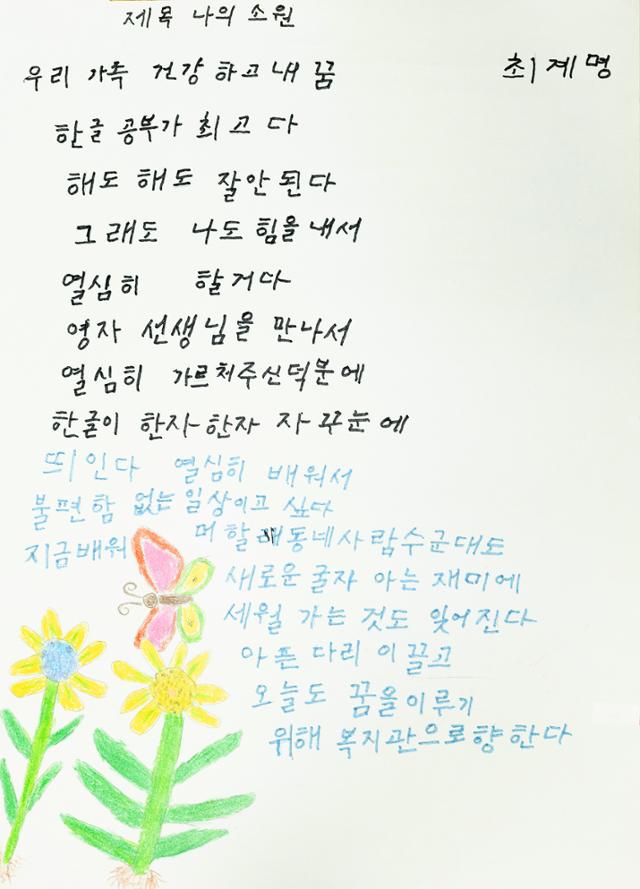 제목 나의 소원
최계명
우리 가족 건강 하고 내 꿈
한글 공부가 최고 다
해도 해도 잘안 된다
그래도 나도 힘을 내서
열심히 할거다
영자 선생님을 만나서
열심히 가르처주신덕분에
한글이 한자 한자 자꾸눈에
띄인다 열심히 배워서
불편함 없는 일상이고 싶다
지금배워 머 할 동네사람수군대도
새로운 글자 아는 재미에
세월 가는 것도 잊어진다
아픈 다리 이끌고
오늘도 꿈을이루기
위해 복지관으로향한다